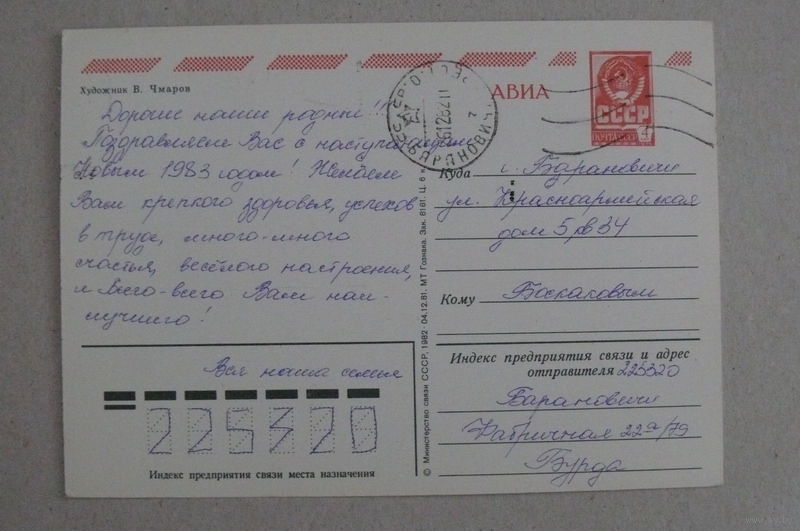 Художник В. Чмаров
АВИА
СССР
ПОЧТА СССР
БАРАНОВИЧИ
Дорогие наши родные!!!
Поздравляем Вас с наступающим
Новым 1983 годом! Желаем
Вам крепкого здоровья, успехов
в труде, много-много
счастья, весёлого настроения,
и всего-всего Вам наи-
лучшего!
Вся наша семья
225320
Индекс предприятия связи места назначения
© Министерство связи СССР, 1982 · 04.12.81. МТ Гознака. Зак. 8161. Ц. 6 к.
Куда г. Барановичи
ул. Красноармейская
дом 5, кв 34
Кому Боскаковым
Индекс предприятия связи и адрес
отправителя 225320
Барановичи
Фабричная 22а/79
Бурда